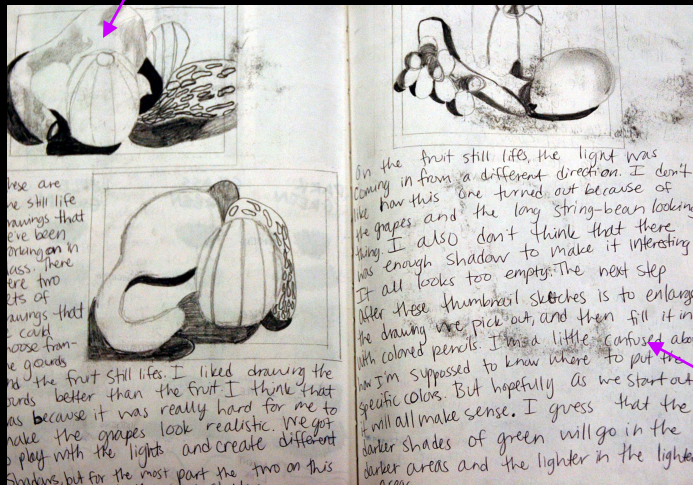 hese are
he still life
rawings that
e've been
orking on in
lass. There
ere two
ets of
rawings that
e could
hoose from-
he gourds
nd the fruit still lifes. I liked drawing the
ourds better than the fruit. I think that
as because it was really hard for me to
make the grapes look realistic. We got
o play with the lights and create different
shadows, but for the most part the two on this
On the fruit still lifes, the light was
coming in from a different direction. I don't
like how this one turned out because of
the grapes and the long string-bean looking
thing. I also don't think that there
was enough shadow to make it interesting
It all looks too empty. The next step
after these thumbnail sketches is to enlarge
the drawing we pick out, and then fill it in
with colored pencils. I'm a little confused abo
how I'm supposed to know where to put the
specific colors. But hopefully as we start out
it will all make sense. I guess that the
darker shades of green will go in the
darker areas and the lighter in the lighter
areas